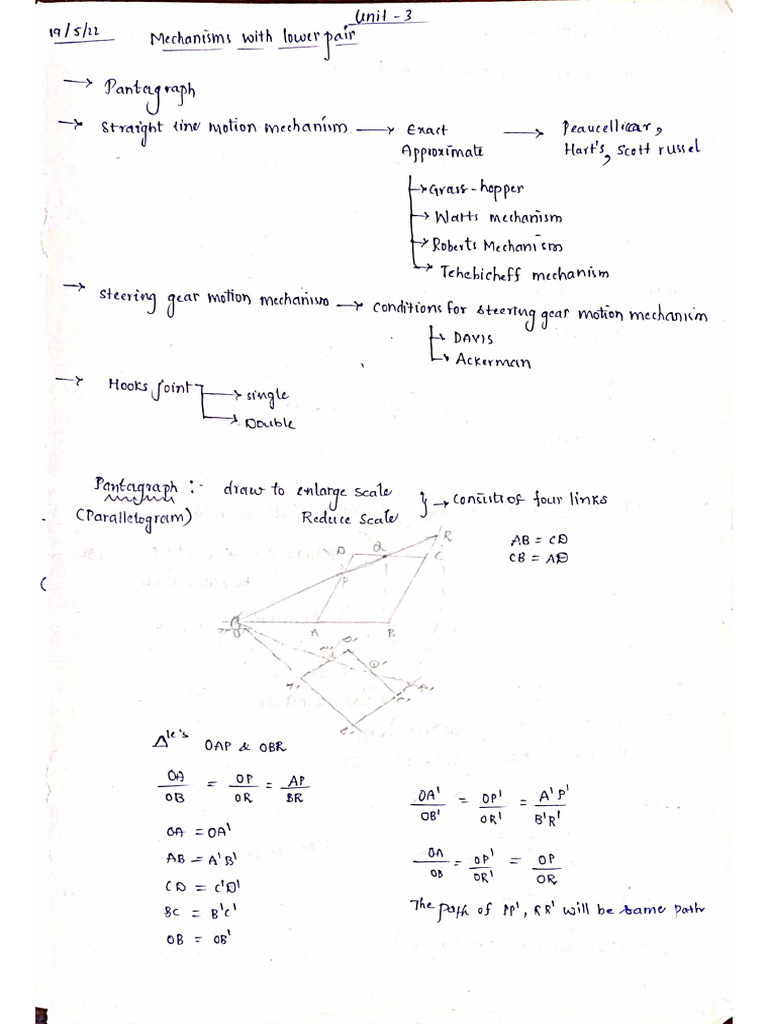 Unit - 3
19/5/22 Mechanisms with lower pair
→ Pantagraph
→ Straight line motion mechanism → Exact → Peaucellicar,
Approximate Hart's, Scott russel
→ Grass-hopper
→ Watts mechanism
→ Roberts Mechanism
→ Tchebicheff mechanism
→ Steering gear motion mechanism → conditions for steering gear motion mechanism
→ DAVIS
→ Ackerman
→ Hooks Joint → single
→ Double
Pantagraph :- draw to enlarge scale } → consists of four links
(Parallelogram) Reduce Scale
AB = CD
CB = AD
R
D Q C
P
O A B
D'
Q'
A' R'
Δle's OAP & OBR
OA/OB = OP/OR = AP/BR
OA'/OB' = OP'/OR' = A'P'/B'R'
OA = OA'
AB = A'B'
OA/OB = OP'/OR' = OP/OR
CD = C'D'
BC = B'C'
The path of PP', RR' will be same path
OB = OB'